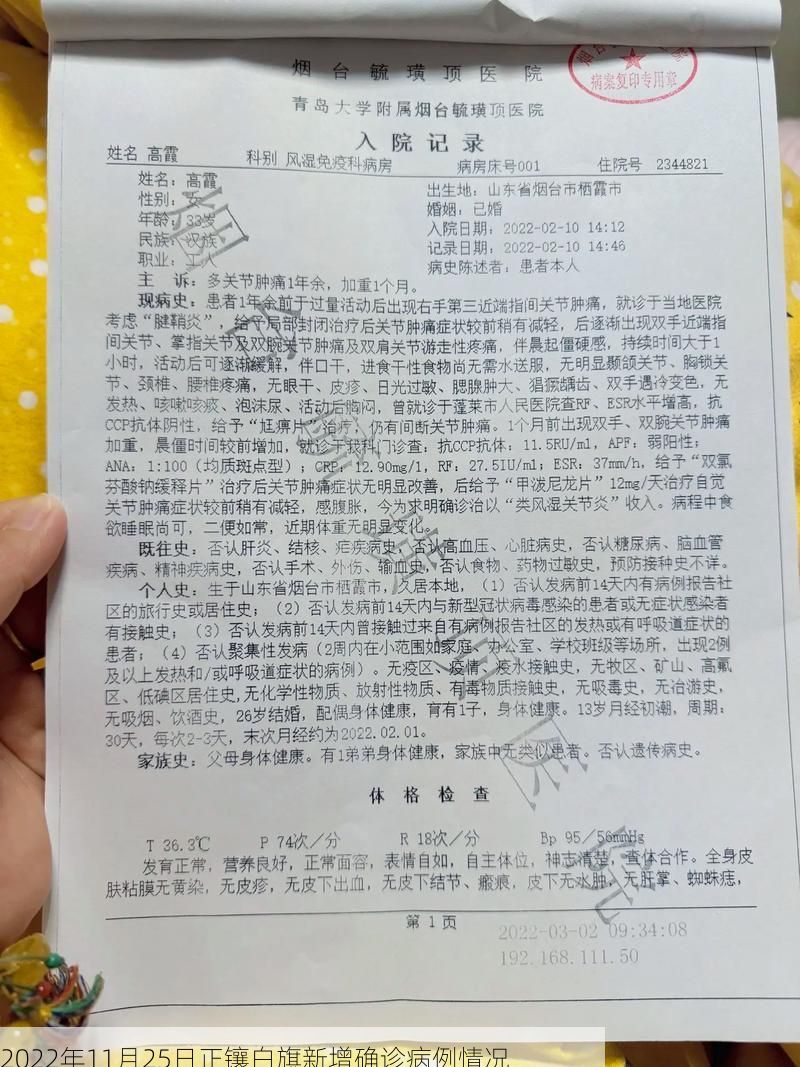 烟台毓璜顶医院
病案复印专用章
青岛大学附属烟台毓璜顶医院
入院记录
姓名 高霞 科别 风湿免疫科病房 病房床号001 住院号 2344821
姓名：高霞 出生地：山东省烟台市栖霞市
性别：女 婚姻：已婚
年龄：33岁 入院日期：2022-02-10 14:12
民族：汉族 记录日期：2022-02-10 14:46
职业：工人 病史陈述者：患者本人
主 诉：多关节肿痛1年余，加重1个月。
现病史：患者1年余前于过量活动后出现右手第三近端指间关节肿痛，就诊于当地医院
考虑“腱鞘炎”，给予局部封闭治疗后关节肿痛症状较前稍有减轻，后逐渐出现双手近端指
间关节、掌指关节及双腕关节肿痛及双肩关节游走性疼痛，伴晨起僵硬感，持续时间大于1
小时，活动后可逐渐缓解，伴口干，进食干性食物尚无需水送服，无明显颞颌关节、胸锁关
节、颈椎、腰椎疼痛，无眼干、皮疹、日光过敏、腮腺肿大、猖獗龋齿、双手遇冷变色，无
发热、咳嗽咳痰、泡沫尿、活动后胸闷，曾就诊于蓬莱市人民医院查RF、ESR水平增高，抗
CCP抗体阴性，给予“尪痹片”治疗，仍有间断关节肿痛。1个月前出现双手、双腕关节肿痛
加重，晨僵时间较前增加，就诊于我科门诊查：抗CCP抗体：11.5RU/ml，APF：弱阳性；
ANA：1:100（均质斑点型）；CRP：12.90mg/l，RF：27.5IU/ml；ESR：37mm/h，给予“双氯
芬酸钠缓释片”治疗后关节肿痛症状无明显改善，后给予“甲泼尼龙片”12mg/天治疗自觉
关节肿痛症状较前稍有减轻，感腹胀，今为求明确诊治以“类风湿关节炎”收入。病程中食
欲睡眠尚可，二便如常，近期体重无明显变化。
既往史：否认肝炎、结核、疟疾病史，否认高血压、心脏病史，否认糖尿病、脑血管
疾病、精神疾病史，否认手术、外伤、输血史，否认食物、药物过敏史，预防接种史不详。
个人史：生于山东省烟台市栖霞市，久居本地，（1）否认发病前14天内有病例报告社
区的旅行史或居住史；（2）否认发病前14天内与新型冠状病毒感染的患者或无症状感染者
有接触史；（3）否认发病前14天内曾接触过来自有病例报告社区的发热或有呼吸道症状的
患者；（4）否认聚集性发病（2周内在小范围如家庭、办公室、学校班级等场所，出现2例
及以上发热和/或呼吸道症状的病例）。无疫区、疫情、疫水接触史，无牧区、矿山、高氟
区、低碘区居住史，无化学性物质、放射性物质、有毒物质接触史，无吸毒史，无冶游史，
无吸烟、饮酒史，26岁结婚，配偶身体健康，育有1子，身体健康。13岁月经初潮，周期：
30天，每次2-3天，末次月经约为2022.02.01。
家族史：父母身体健康。有1弟弟身体健康，家族中无类似患者。否认遗传病史。
体格检查
T 36.3℃ P 74次／分 R 18次／分 Bp 95／56mmHg
发育正常，营养良好，正常面容，表情自如，自主体位，神志清楚，查体合作。全身皮
肤粘膜无黄染，无皮疹，无皮下出血，无皮下结节、瘢痕，皮下无水肿，无肝掌、蜘蛛痣，
第 1 页
2022-03-02 09:34:08
192.168.111.50
2022年11月25日正镶白旗新增确诊病例情况